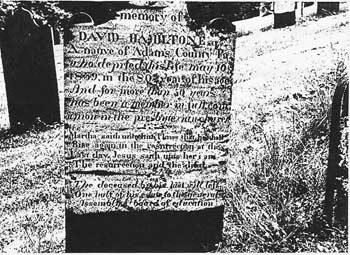 memory of
DAVID HAMILTONE
A native of Adams County P
who departed this life may 10
1869, in the 80 year of his age
And for more than 50 years
has been a member in full com
union in the presbyterian church
Martha said unto him I know that he shall
Rise again in the resurrection at the
Last day, Jesus saith unto her i am
The resurrection and the
The deceased by his last will left
One half of his estate to the general
Assemblys board of education